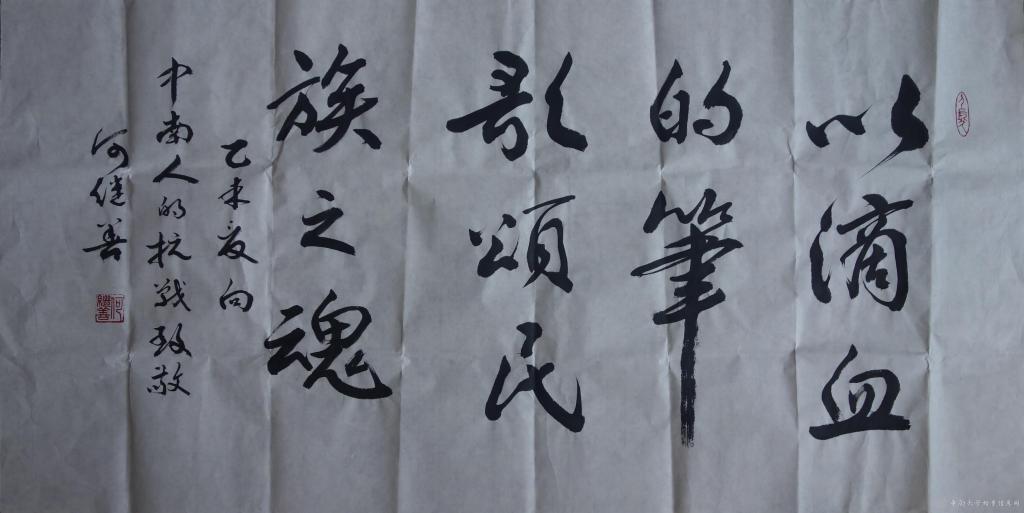 以滴血
的筆
歌頌民
族之魂
乙未夏向
中南人的抗战致敬
何继善
何繼善